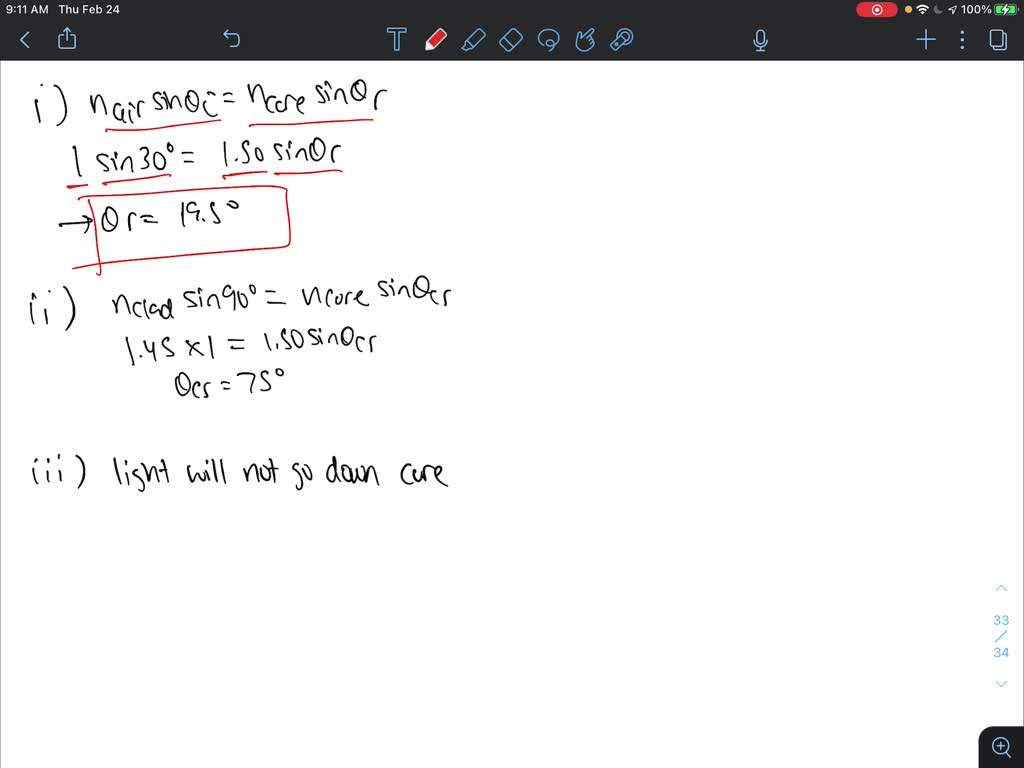 9:11 AM Thu Feb 24
100%
i) nair sinθi = ncore sinθr
1 sin30° = 1.50 sinθr
→ θr = 19.5°
ii) nclad sin90° = ncore sinθcr
1.45 × 1 = 1.50 sinθcr
θcr = 75°
iii) light will not go down core
33
/
34